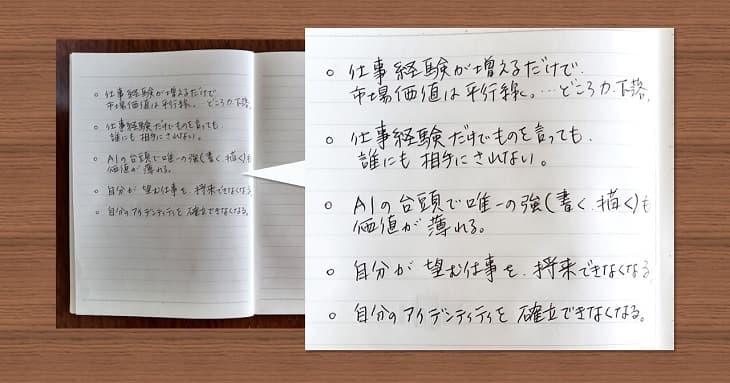 ○ 仕事経験が増えるだけで、
市場価値は平行線。…どころか下落。
○ 仕事経験だけでものを言っても、
誰にも相手にされない。
○ AIの台頭で唯一の強(書く、描く)も
価値が薄れる。
○ 自分が望む仕事を、将来できなくなる
○ 自分のアイデンティティを確立できなくなる。
○ 仕事経験が増えるだけで、
市場価値は平行線。…どころか下落。
○ 仕事経験だけでものを言っても、
誰にも相手にされない。
○ AIの台頭で唯一の強(書く、描く)も
価値が薄れる。
○ 自分が望む仕事を、将来できなくなる
○ 自分のアイデンティティを確立できなくなる。